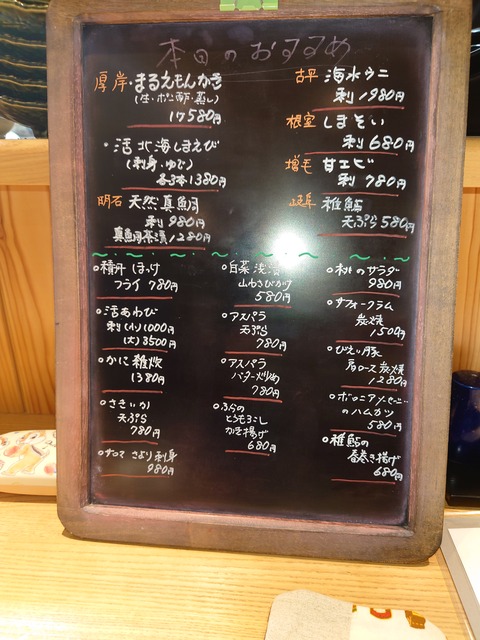 本日のおすすめ
厚岸・まるえもんかき
(生・ポン酢・蒸し)
1コ580円
・活 北海しまえび
(刺身・ゆで)
各3本1380円
明石 天然真鯛
刺 980円
真鯛茶漬 1280円
古平 海水ウニ
刺 1980円
根室 しまそい
刺 680円
増毛 甘エビ
刺 780円
岐阜 稚鮎
天ぷら580円
○積丹 ほっけ
フライ 780円
○活あわび
刺(小)1000円
(大)3500円
○かに雑炊
1380円
○さきいか
天ぷら
780円
○サロマ さより刺身
980円
○白菜浅漬
山わさびがけ
580円
○アスパラ
天ぷら
780円
○アスパラ
バター炒め
780円
○ふらの
とうもろこし
かき揚げ
680円
○桃のサラダ
980円
○サフォークラム
炭焼
1500円
○びえい豚
肩ロース炭焼
1280円
○ボロニアソーセージ
のハムカツ
580円
○稚鮎の
春巻き揚げ
680円